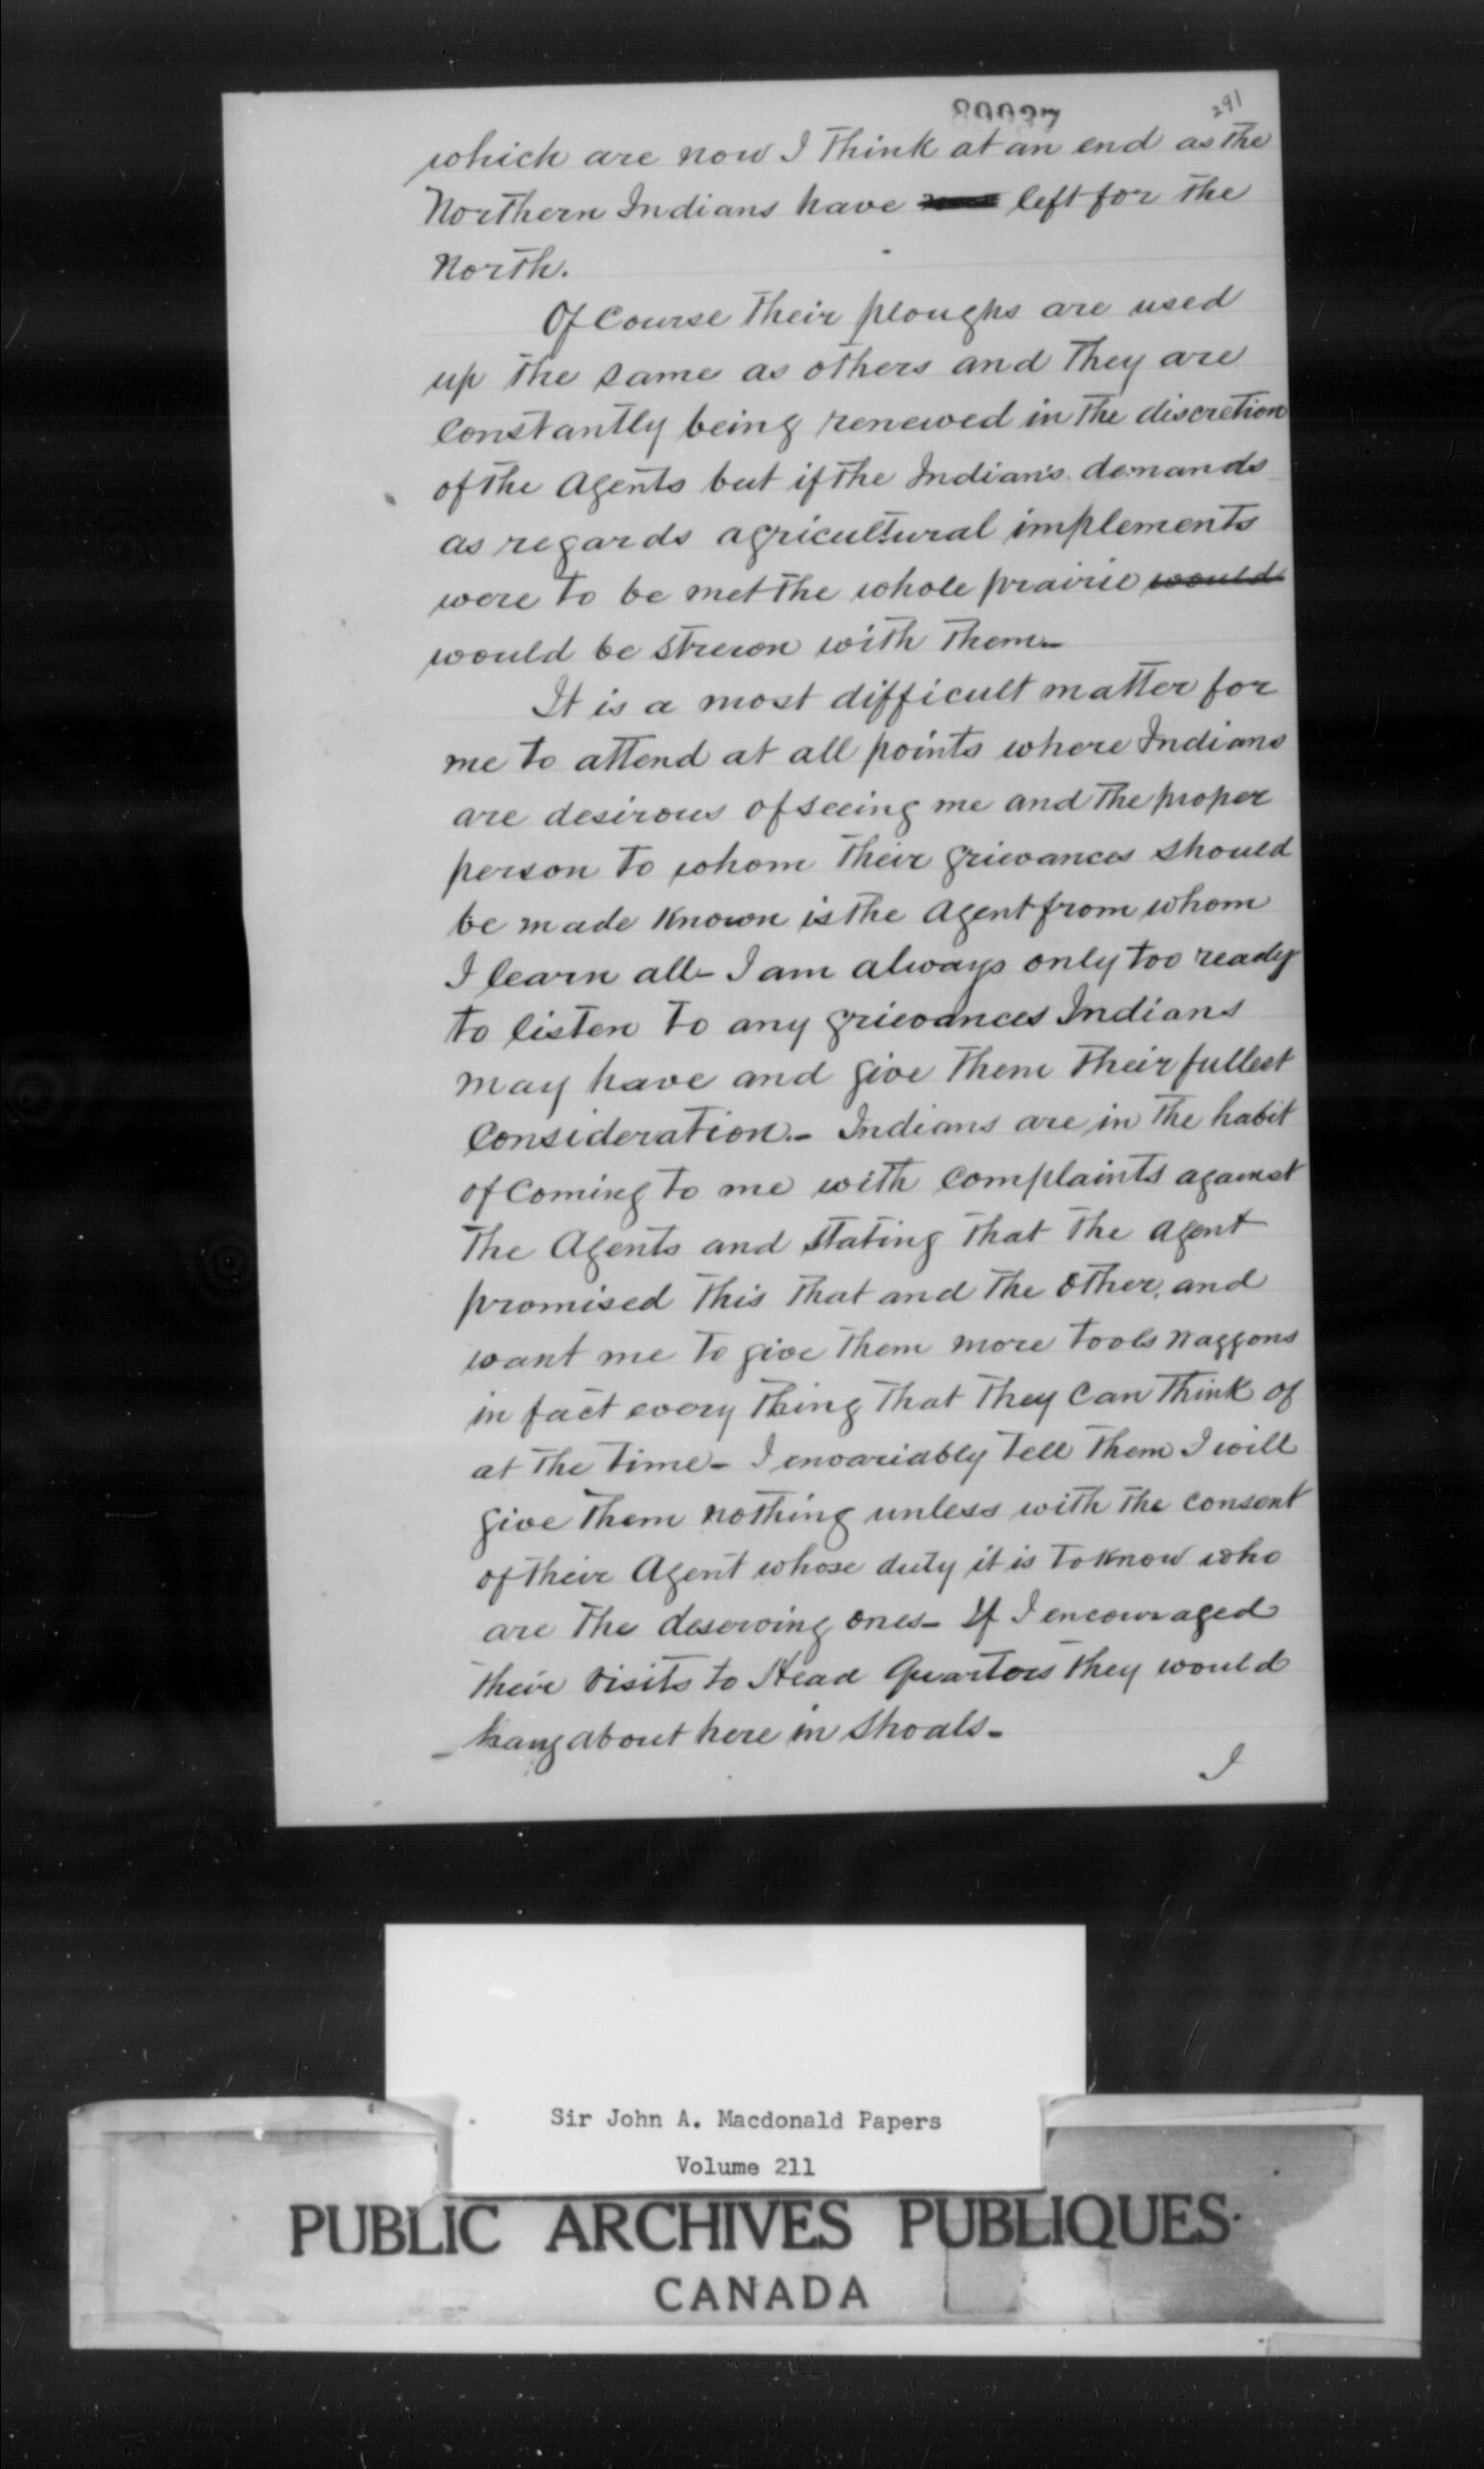 291
which are now I think at an end as the
Northern Indians have left for the
North.
Of Course their ploughs are used
up the same as others and they are
constantly being renewed in the discretion
of the Agents but if the Indian's demands
as regards agricultural implements
were to be met the whole prairie would
would be strewn with them—
It is a most difficult matter for
me to attend at all points where Indians
are desirous of seeing me and the proper
person to whom their grievances should
be made known is the Agent from whom
I learn all— I am always only too ready
to listen to any grievances Indians
may have and give them their fullest
Consideration.— Indians are in the habit
of coming to me with complaints against
the Agents and stating that the agent
promised this that and the other, and
want me to give them more tools waggons
in fact every thing that they can think of
at the time— I invariably tell them I will
give them nothing unless with the consent
of their Agent whose duty it is to know who
are the deserving ones— If I encouraged
their visits to Head Quarters they would
hang about here in shoals—
I
Sir John A. Macdonald Papers
Volume 211
PUBLIC ARCHIVES PUBLIQUES
CANADA